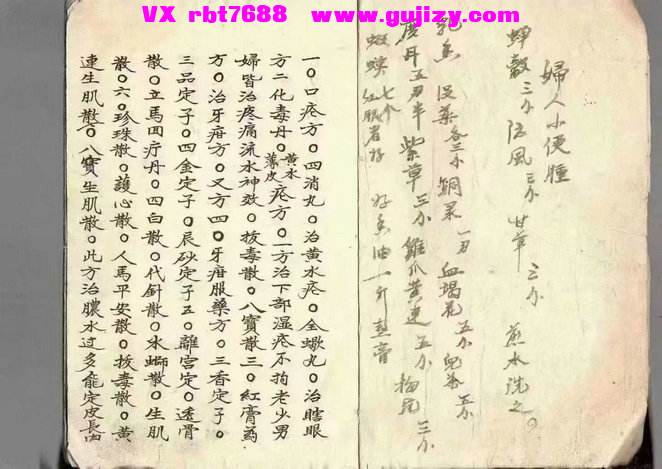 VX rbt7688 www.gujizy.com
婦人小便腫
蟬蛻三小防風三小甘草三小煎水洗之。
乳香沒藥各三小銅衆一刃血竭花五小兒茶五小
廣丹五刃半紫草三小雞爪黃連五小梅花三小
蚥蟆七个紅眼者好好香油一斤熬膏
一〇口疮方〇四消丸〇治黃水疮〇全蠍丸〇治瞎眼
方二化毒丹〇黃水薄皮疮方〇一方治下部湿疮不拘老少男
婦皆治疼痛流水神效〇拔毒散〇八寶散三〇紅膏药
方〇治牙疳方〇又方四〇牙疳服藥方〇三香定子〇
三品定子〇四金定子〇辰砂定子五〇離宮定〇透骨
散〇立馬回疔丹〇四白散〇代針散〇水螄散〇生肌
散〇六〇珍珠散〇護心散〇人馬平安散〇拔毒散〇黃
連生肌散〇八寶生肌散〇此方治膿水过多能定皮長肉